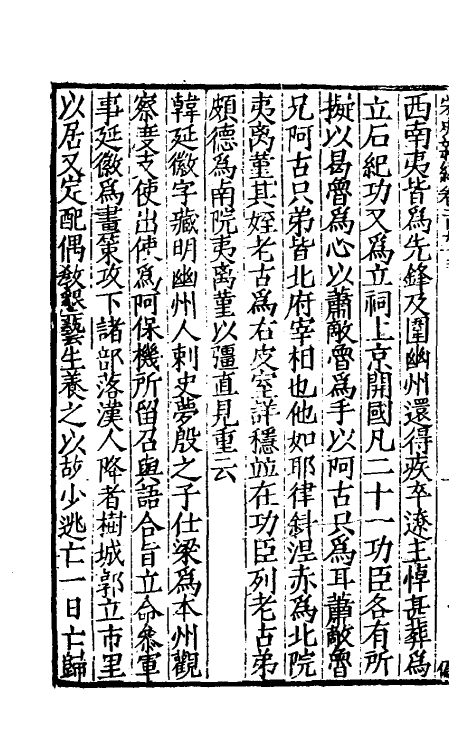 西南夷皆爲先鋒及圍幽州還得疾卒遼主悼甚葬爲
立石紀功又爲立祠上京開國凡二十一功臣各有所
擬以曷魯爲心以蕭敵魯爲手以阿古只爲耳蕭敵魯
兄阿古只弟皆北府宰相也他如耶律斜涅赤爲北院
夷离菫其姪老古爲右皮室詳穩並在功臣列老古弟
頗德爲南院夷离菫以彊直見重云
韓延徽字藏明幽州人刺史夢殷之子仕梁爲本州觀
察度支使出使爲阿保機所留召與語合旨立命叅軍
事延徽爲畫策攻下諸部落漢人降者樹城郭立市里
以居又定配偶敎墾藝生養之以故少逃亡一日亡歸